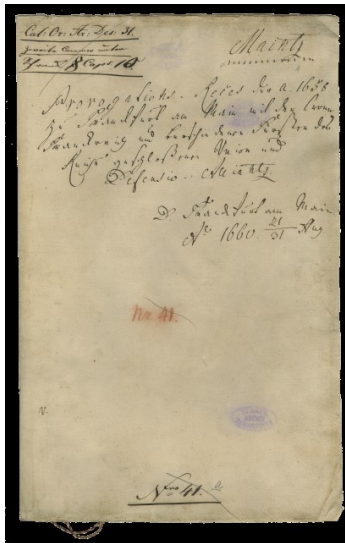 Cal: Or: Ar: Des: 31.
Capſ 16.
Maintz
Prorogations-Reces der a. 1658
zu Frankfurt am Main mit der Cron
Frankreich und verschiedenen Fürsten des
Reichs geschloßenen Union und
Defensiv-Allianz.
D. Frankfurt am Main
A° 1660 21/31 Aug
No. 41.
V.
Nro 41. a